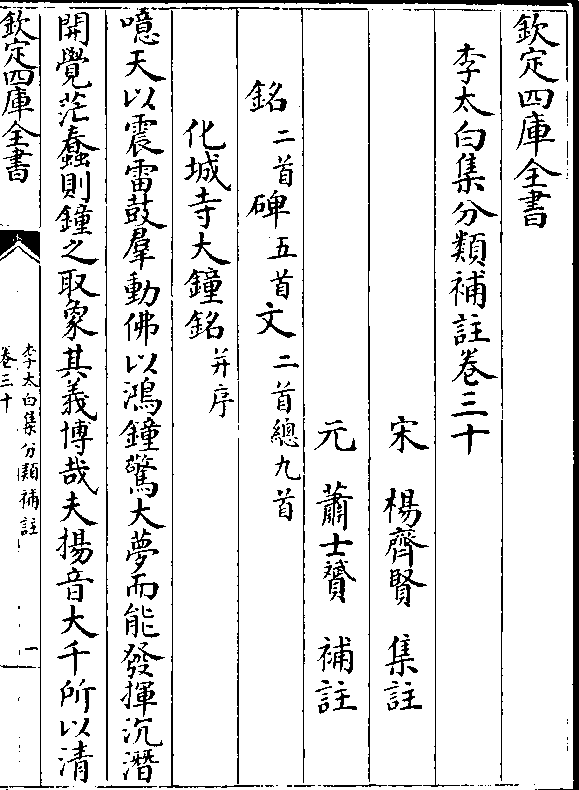 欽定四庫全書
李太白集分類補註卷三十
宋 楊齊賢 集註
元 蕭士贇 補註
銘二首碑五首文二首總九首
化城寺大鐘銘并序
噫天以震雷鼓羣動佛以鴻鐘驚大夢而能發揮沉潛
開覺茫蠢則鐘之取象其義博哉夫揚音大千所以清
欽定四庫全書
李太白集分類補註
卷三十
一